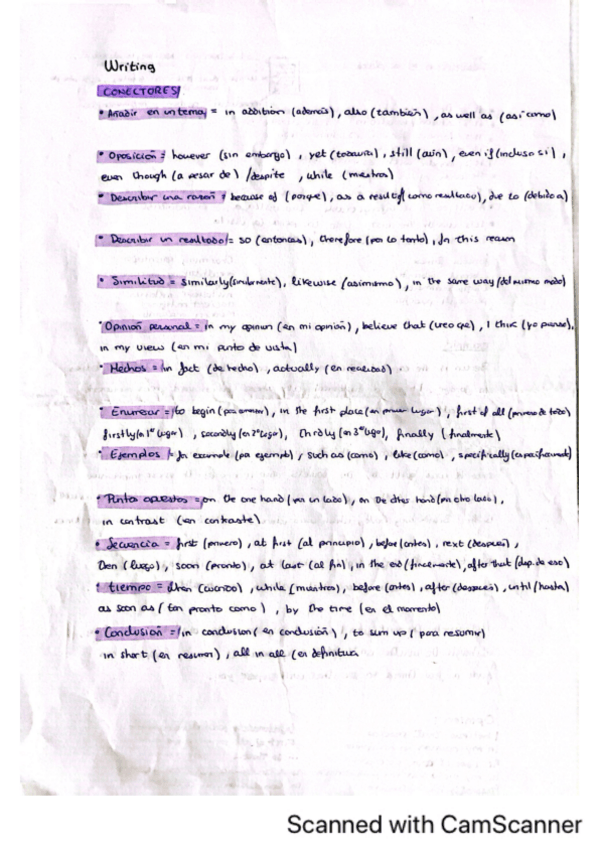 Writing
CONECTORES
• Añadir en un tema = in addition (además), also (también), as well as (así como)
• Oposición = however (sin embargo), yet (todavía), still (aún), even if (incluso si),
even though (a pesar de) / despite, while (mientras)
• Describir una razón = because of (porque), as a result (como resultado), due to (debido a)
• Describir un resultado = so (entonces), therefore (por lo tanto), for this reason
• Similitud = Similarly (similarmente), likewise (asimismo), in the same way (del mismo modo)
• Opinión personal = in my opinion (en mi opinión), believe that (creo que), I think (yo pienso),
in my view (en mi punto de vista)
• Hechos = In fact (de hecho), actually (en realidad)
• Enumerar = to begin (para empezar), in the first place (en primer lugar), first of all (primero de todo)
firstly (en 1er lugar), secondly (en 2º lugar), thirdly (en 3er lugar), finally (finalmente)
• Ejemplos = for example (por ejemplo), such as (como), like (como), specifically (específicamente)
• Punto opuestos = on the one hand (por un lado), on the other hand (por otro lado),
in contrast (en contraste)
• Secuencia = first (primero), at first (al principio), before (antes), next (después),
then (luego), soon (pronto), at last (al fin), in the end (finalmente), after that (dsp. de eso)
• tiempo = when (cuando), while (mientras), before (antes), after (después), until (hasta)
as soon as (tan pronto como), by the time (en el momento)
• Conclusión = in conclusion (en conclusión), to sum up (para resumir)
in short (en resumen), all in all (en definitiva
Scanned with CamScanner